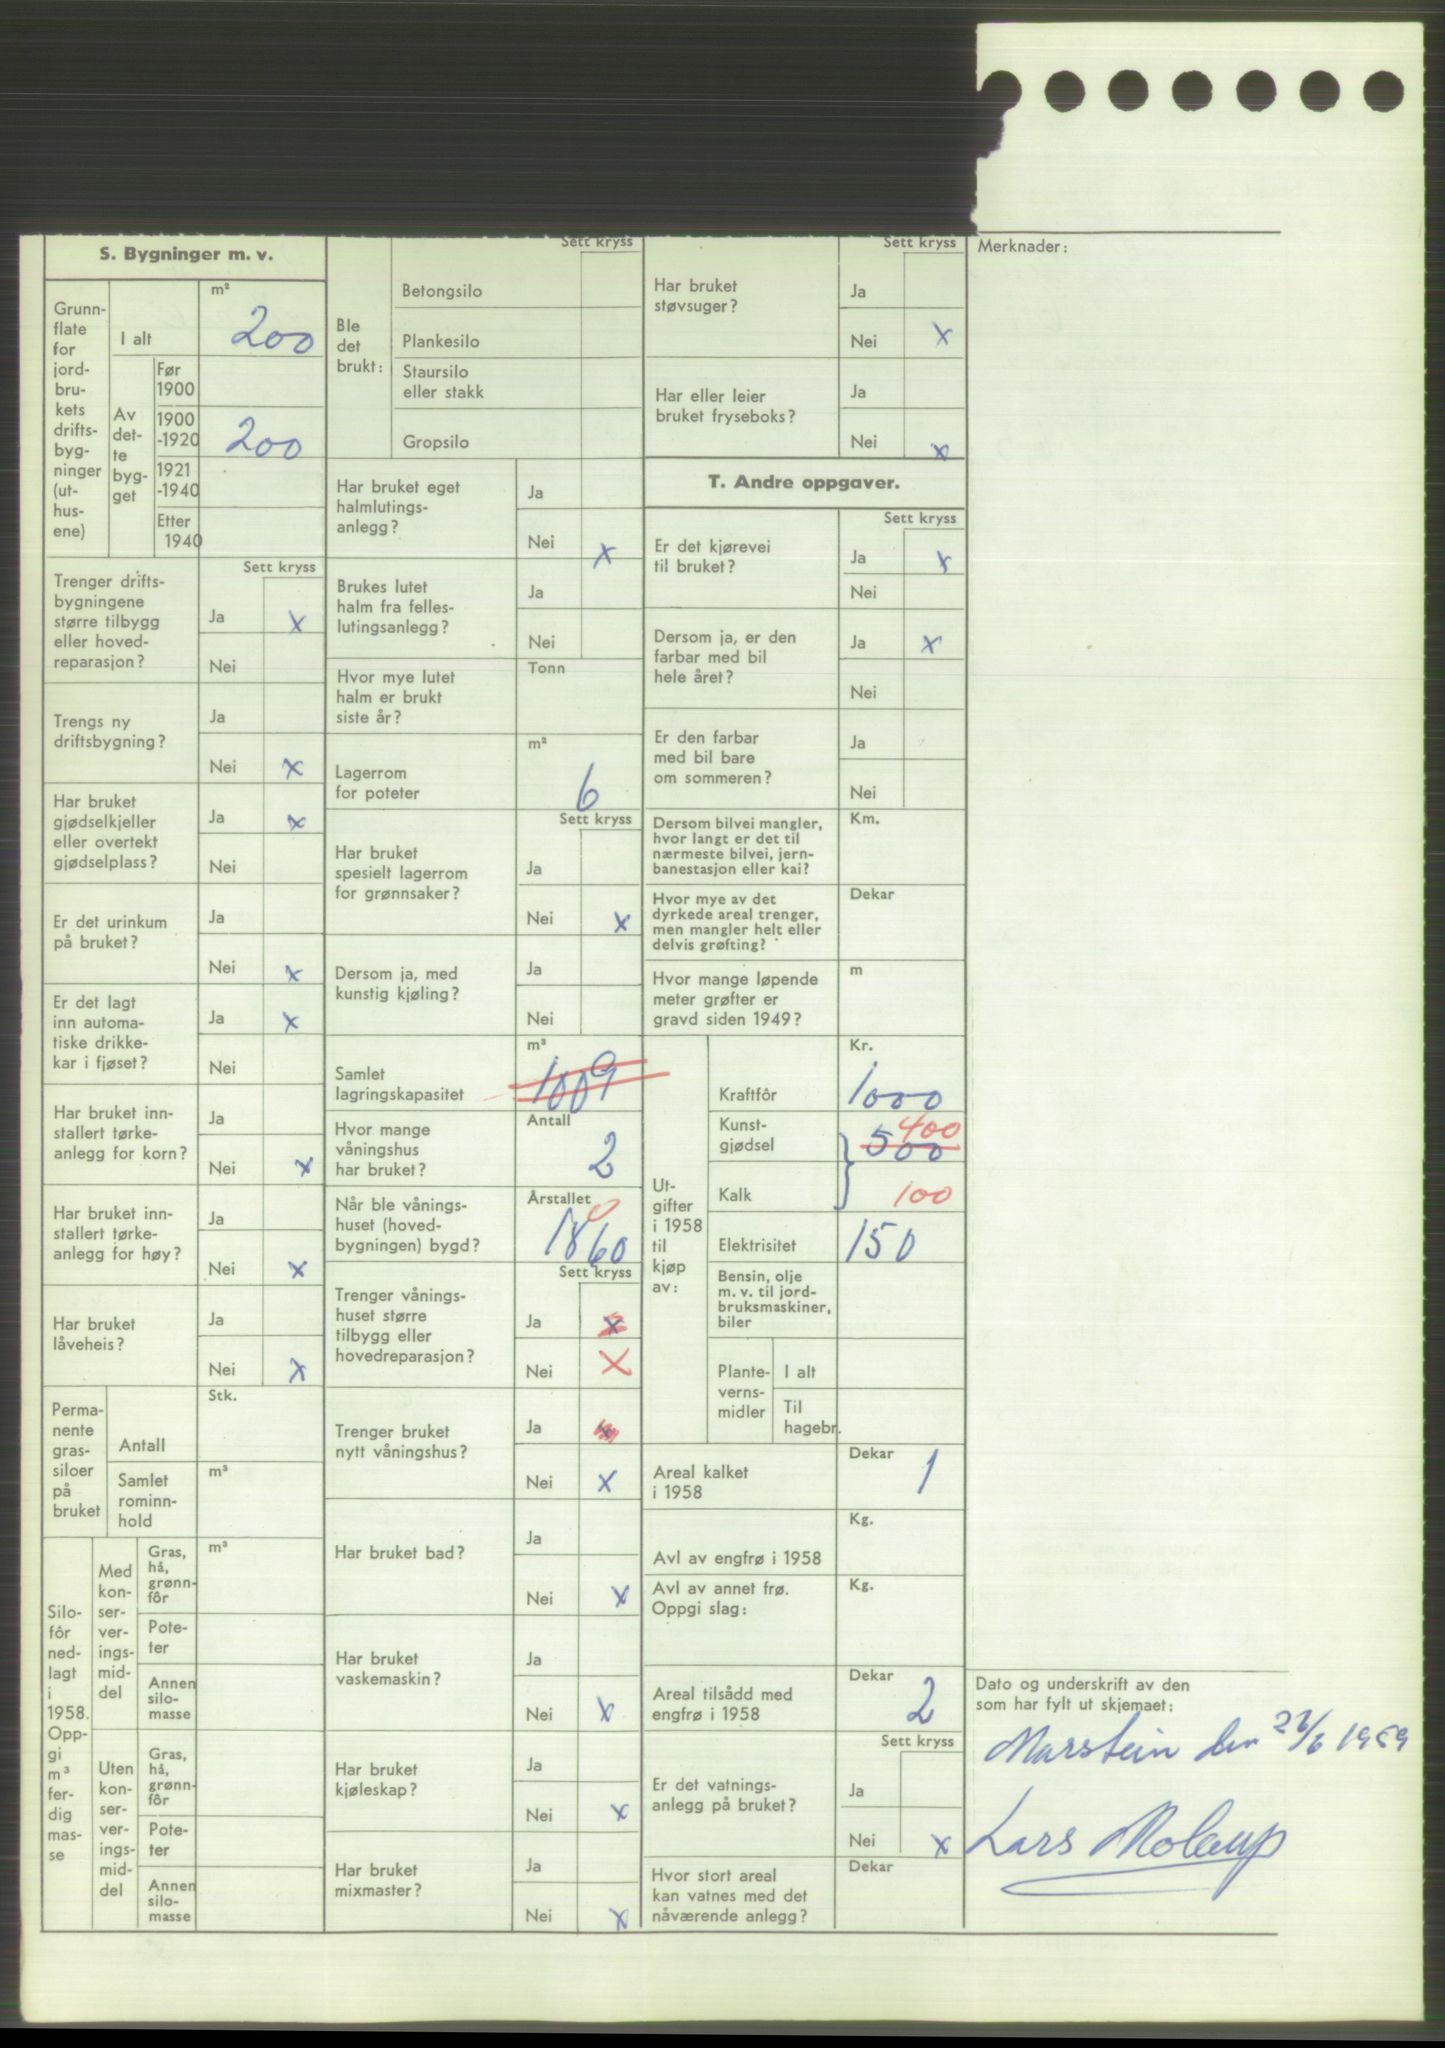 S. Bygninger m. v.
Grunn-
flate
for
jord-
bru-
kets
drifts-
byg-
ninger
(ut-
hus-
ene)
I alt
m²
200
Av
det-
te
byg-
get
Før
1900
1900
-1920
200
1921
-1940
Etter
1940
Sett kryss
Trenger drifts-
bygningene
større tilbygg
eller hoved-
reparasjon?
Ja x
Nei
Trengs ny
driftsbygning?
Ja
Nei x
Har bruket
gjødselkjeller
eller overtekt
gjødselplass?
Ja x
Nei
Er det urinkum
på bruket?
Ja
Nei x
Er det lagt
inn automa-
tiske drikke-
kar i fjøset?
Ja x
Nei
Har bruket inn-
stallert tørke-
anlegg for korn?
Ja
Nei x
Har bruket inn-
stallert tørke-
anlegg for høy?
Ja
Nei x
Har bruket
låveheis?
Ja
Nei x
Perma-
nente
gras-
siloer
på
bruket
Stk.
Antall
m³
Samlet
rominn-
hold
Silo-
fôr
ned-
lagt
i
1958.
Opp-
gi
m³
fer-
dig
mas-
se
Med
kon-
ser-
ver-
ings-
mid-
del
Gras,
hå,
grønn-
fôr
m³
Pote-
ter
Annen
silo-
masse
Uten
kon-
ser-
ver-
ings-
mid-
del
Gras,
hå,
grønn-
fôr
Pote-
ter
Annen
silo-
masse
Sett kryss
Ble
det
brukt:
Betongsilo
Plankesilo
Staursilo
eller stakk
Gropsilo
Har bruket eget
halmlutings-
anlegg?
Ja
Nei x
Brukes lutet
halm fra felles-
lutingsanlegg?
Ja
Nei
Hvor mye lutet
halm er brukt
siste år?
Tonn
Lagerrom
for poteter
m²
6
Sett kryss
Har bruket
spesielt lagerrom
for grønnsaker?
Ja
Nei x
Dersom ja, med
kunstig kjøling?
Ja
Nei
Samlet
lagringskapasitet
m³
1009
Hvor mange
våningshus
har bruket?
Antall
2
Når ble vånings-
huset (hoved-
bygningen) bygd?
Årstallet
1860
Sett kryss
Trenger vånings-
huset større
tilbygg eller
hovedreparasjon?
Ja x
Nei x
Trenger bruket
nytt våningshus?
Ja x
Nei x
Har bruket bad?
Ja
Nei x
Har bruket
vaskemaskin?
Ja
Nei x
Har bruket
kjøleskap?
Ja
Nei x
Har bruket
mixmaster?
Ja
Nei x
Sett kryss
Har bruket
støvsuger?
Ja
Nei x
Har eller leier
bruket fryseboks?
Ja
Nei x
T. Andre oppgaver.
Sett kryss
Er det kjørevei
til bruket?
Ja x
Nei
Dersom ja, er den
farbar med bil
hele året?
Ja x
Nei
Er den farbar
med bil bare
om sommeren?
Ja
Nei
Dersom bilvei mangler,
hvor langt er det til
nærmeste bilvei, jern-
banestasjon eller kai?
Km.
Hvor mye av det
dyrkede areal trenger,
men mangler helt eller
delvis grøfting?
Dekar
Hvor mange løpende
meter grøfter er
gravd siden 1949?
m
Ut-
gifter
i 1958
til
kjøp
av:
Kr.
Kraftfôr
1000
Kunst-
gjødsel
400
500
Kalk
100
Elektrisitet
150
Bensin, olje
m. v. til jord-
bruksmaskiner,
biler
Plante-
verns-
midler
I alt
Til
hagebr.
Areal kalket
i 1958
Dekar
1
Avl av engfrø i 1958
Kg.
Avl av annet frø.
Oppgi slag:
Kg.
Areal tilsådd med
engfrø i 1958
Dekar
2
Sett kryss
Er det vatnings-
anlegg på bruket?
Ja
Nei x
Hvor stort areal
kan vatnes med det
nåværende anlegg?
Dekar
Merknader:
Dato og underskrift av den
som har fylt ut skjemaet:
Marstein den /6 1959
Lars